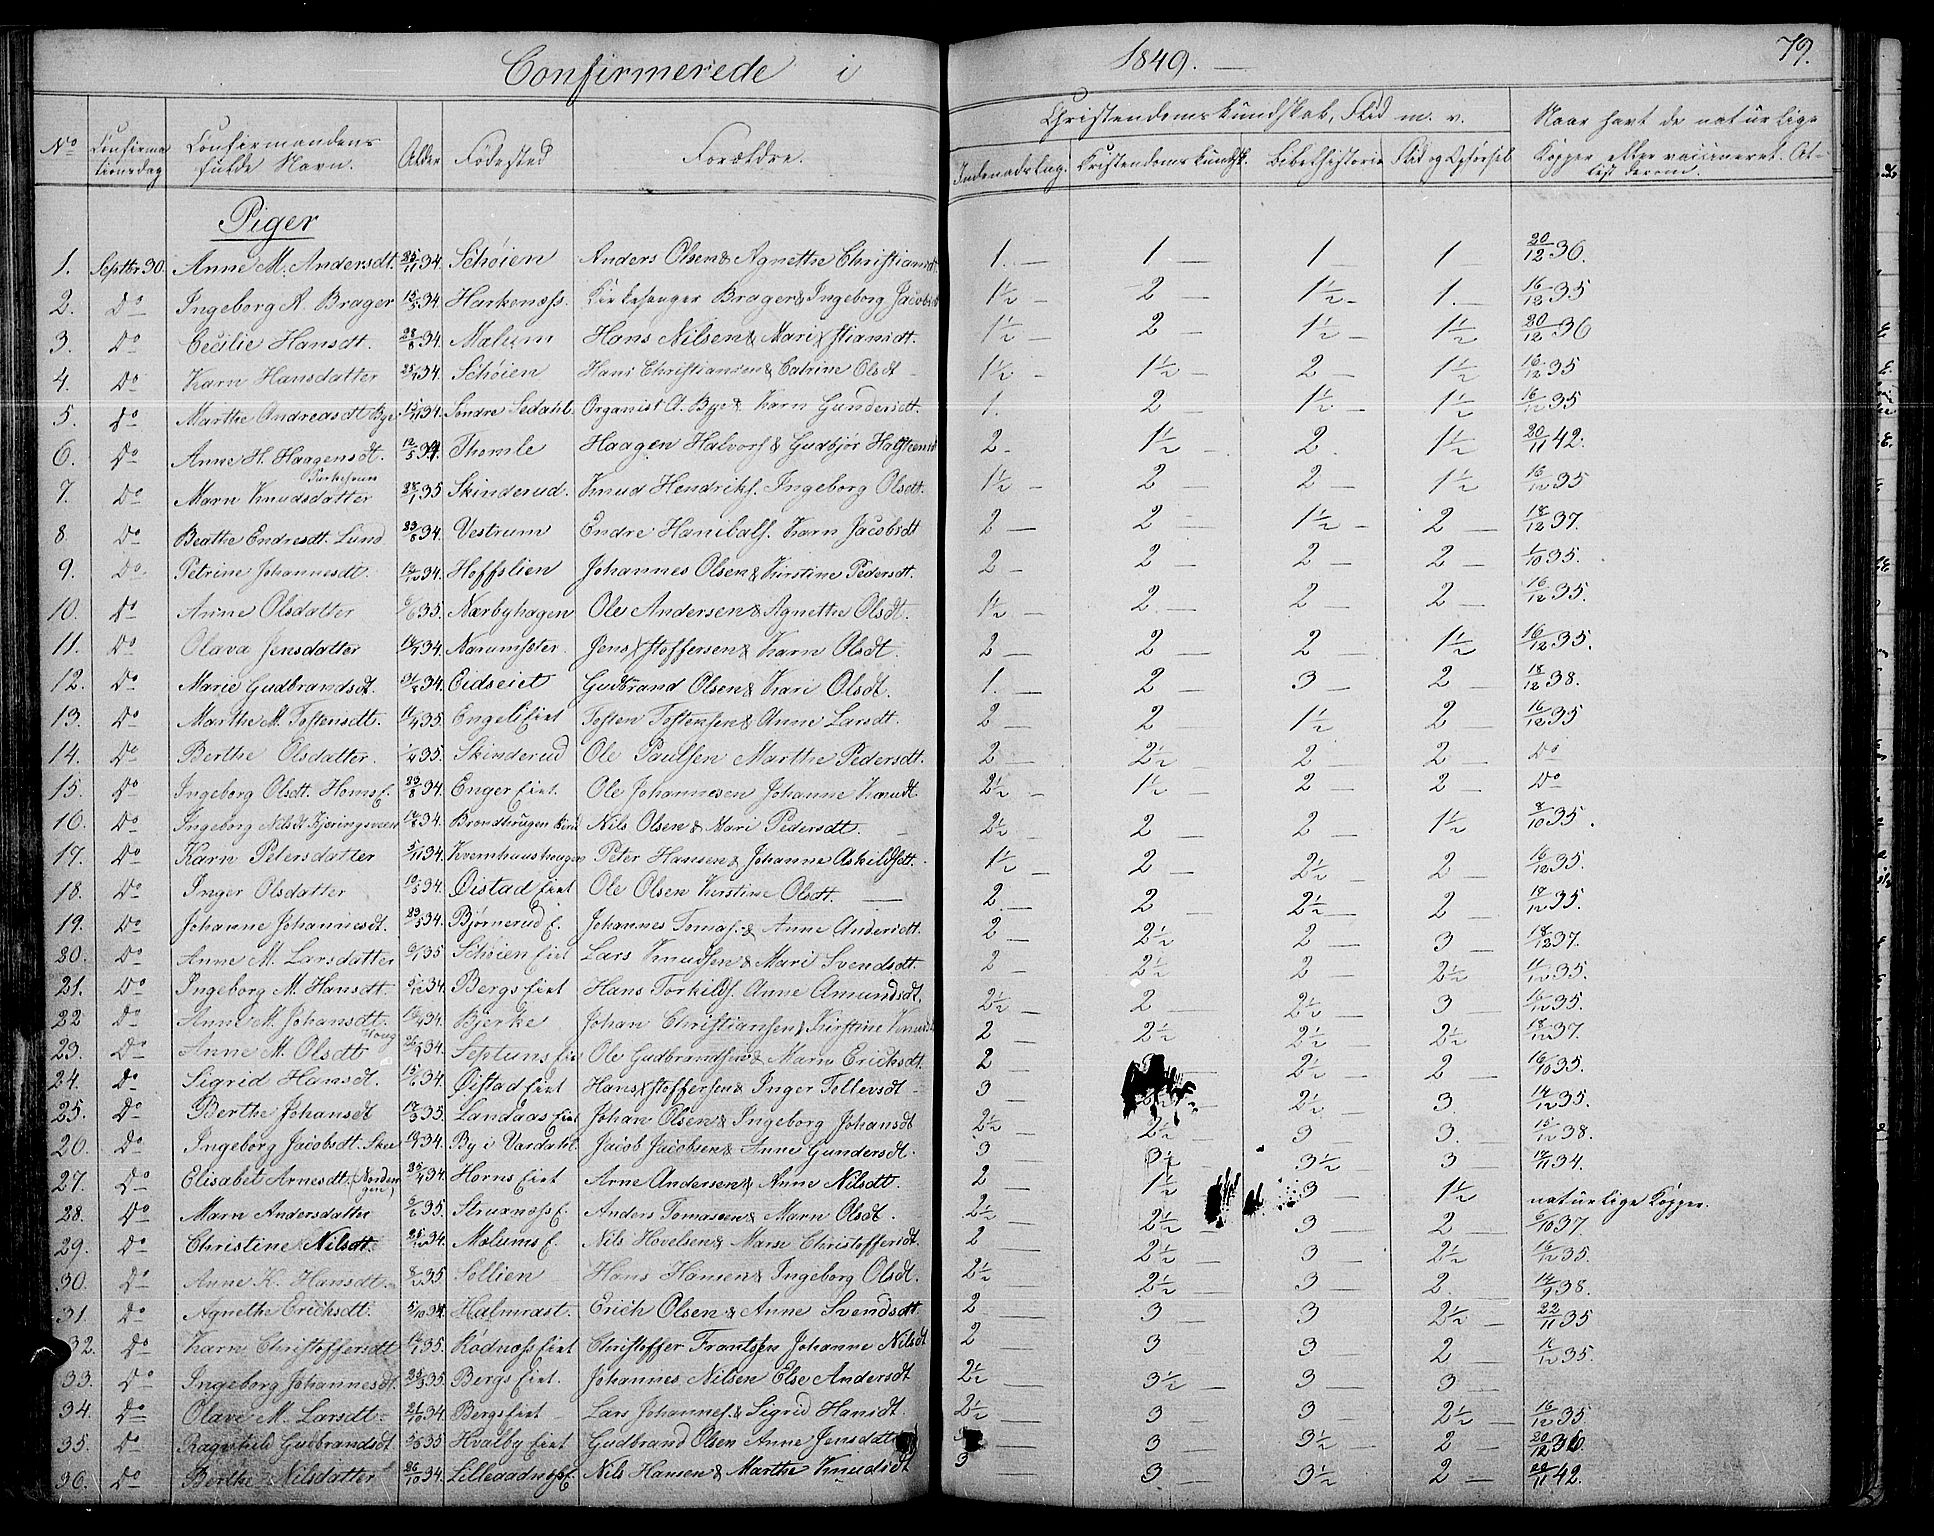 Confirmerede i 1849. — 79.
Christendomskundskab, Flid m. v.
No Confirmationsdag Confirmandens fulde Navn. Alder Fødested Forældre. Indenadslæg. Kristendomskundsk. Bibelhistorie Flid og Opførsel Naar havt de naturlige Kopper eller vaccineret. Attest derom.
Piger
1. Septbr. 30. Anne M. Andersdt. 25/11 34. Schøien Anders Olsen & Agnethe Christiansdt. 1. — 1 — 1 — 1 — 20/12 36.
2. Do Ingeborg A. Brager 15/5 34. Harkenæss. Kirkesanger Brager & Ingeborg Jacobsdt 1½ — 2 — 1½ — 1. — 16/12 35
3. Do Cecilie Hansdt. 28/8 34. Mælum Hans Nilsen & Mari Xstiansdt. 1½ — 2 — 1½ — 1½ — 20/12 36
4. Do Karn Hansdatter 34. Schøien Hans Christiansen & Catrine Olsdt — 1½ — 1½ — 2 — 1½ 16/12 35
5. Do Marthe Andreasdt Bye 34. Søndre Sedahl. Organist A. Bye & Karn Gundersdt. 1. 2 — 1½ — 1½ — 16/12 35
6. Do Anne H. Haagensdt. 12/5 34. Thomle Haagen Halvors. & Gudbjør 2 — 1½ — 2. 1½ — 20/11 42.
7. Do Marn Knudsdatter 28/1 35 Skinderud. Knud Hendriks. Ingeborg Olsdt. 1½ — 2 — 2 — 1½ 16/12 35
8. Do Beathe Endresdt. Lund 23/8 34. Vestrum Endre Hanibals. Karn Jacobsdt 2 — 2 — 1½ — 2 — 18/12 37.
9. Do Petrine Johannesdt. 34. Hoffslien Johannes Olsen & Kirstine Pedersdt. 2 — 2 — 2 — 2 — 1/10 35.
10. Do Anne Olsdatter 35. Nærbyhagen Ole Andersen & Agnethe Olsdt. 1½ — 2. — 2 — 2 — 16/12 35.
11. Do Olava Jensdatter 34. Jens Xstoffersen & Karn Olsdt. 2 — 2 — 2 — 1½ 16/12 35.
12. Do Marie Gudbrandsdt. 34. Eidseiet Gudbrand Olsen & Kari Olsdt. 1. — 2 — 3 — 2 — 18/12 38.
13. Do Marthe M. Tostensdt. 35. Engeliseiet Tosten Tostensen & Anne Larsdt. 2 — 2 1½ 2 — 16/12 35
14. Do Berthe Olsdatter. 35. Skinderud Ole Paulsen Marthe Pedersdt. 2 — 2½ — 2 — 2 — Do
15. Do Ingeborg Olsdt. Homs. 23/8 34. Enger Eiet. Ole Johannesen Johanne Knudt. 2½ — 1½ — 2 2 — Do
16. Do Ingeborg Nilsdt Kjeringsveen 34. Nils Olsen & Mari Pedersdt. — 2½ — 2 — 2 — 1½ — 8/10 35.
17. Do Karn Petersdatter 5/11 34. Peter Hansen & Johanne Askildsdt. 1½ — 2 — 2½ — 2 — 16/12 35.
18. Do Inger Olsdatter 34. Øistad Eiet Ole Olsen Kirstine Olsdt. — 2. — 2 — 2½ — 2 — 35.
19. Do Johanne Johannesdt. 23/5 34. Bjørnerud E. Johannes Tomas. & Anne Andersdt. 2 — 2½ — 2 — 3 — 18/12 37.
20. Do Anne M. Larsdatter 35. Schøien Eiet Lars Knudsen & Mari Svendsdt. 2 — 2½ — 2 — 2½ — 35.
21. Do Ingeborg M. Hansdt. 34. Bergs Eiet Hans Torkilds. Anne Amundsdt. 2½ — 2 — 2½ — 3 — 16/12 35.
22 Do Anne M. Johansdt. 34. Bjerke Johan Christiansen & Kirstine 2 — 2½ — 2½ — 2½ — 18/12 37.
23. Do Anne M. Olsdt Houg 34. Septuns Eiet Ole Gudbrandsen & Marn Ericksdt. 2 — 2½ — 2 — 16/10 35.
24. Do Sigrid Hansdt. 15/6 34. Øistad Eiet Hans Xstoffersen & Inger Tollersdt — 3 — 2½ — 3. — 14/12 35.
25. Do Berthe Johansdt 35. Landaas Eiet Johan Olsen & Ingeborg Johansdt 2½ — 2½ — 3 — 3. — 15/12 38.
26. Do Ingeborg Jacobsdt. Skee 34. By i Vardahl. Jacob Jacobsen & Anne Gundersdt. 3 — 3½ — 3½ — 3 — 34.
27. Do Elisabet Arnesdt. (Nordengen) 34. Horns Eiet Arne Andersen & Anne Nilsdt. 2 — 1½ 3 — 1½ naturlige Kopper.
28. Do Marn Andersdatter 35. Anders Tomassen & Marn Olsdt. 2½ — 2½ — 3 — 2 — 6/10 37.
29. Do Christine Nilsdt. 34. Mælums E. Nils Hovelsen & Marn Christoffersdt. 2 — 2½ — 3 2½ — 16/12 35.
30. Do Anne K. Hansdt. 35. Sollien Hans Hansen & Ingeborg Olsdt. 2½ — 2½ — 3 — 2. — 38.
31. Do Agnethe Ericksdt. 5/10 34. Halmrast. Erich Olsen & Anne Svendsdt. 2 — 3 — 3 2½ — 22/11 35
32. Do Karn Christoffersdt 35. Rødnæss Eiet Christoffer Frantsen Johanne Nilsdt 2 — 3 3 2 — 16/12 35.
33. Do Ingeborg Johannesdt. 35. Bergs Eiet. Johannes Nilsen Else Andersdt 2½ — 3½ — 3 — 3 —
34. Do Olave M. Larsdt. 21/10 34. Bergs Eiet Lars Johannes. & Sigrid Hansdt. 2½ — 3 3 — 2½ — 16/12 35.
35. Do Ragnhild Gudbrandsdt. 35 Hvalby Eiet Gudbrand Olsen Anne Jensdatt — 3 — 3½ — 2 — 20/12 36.
36. Do Berthe Nilsdatter 26/10 34. Nils Hansen & Marthe Knudsdt 3 — 3 — 3½ — 2 — 42.